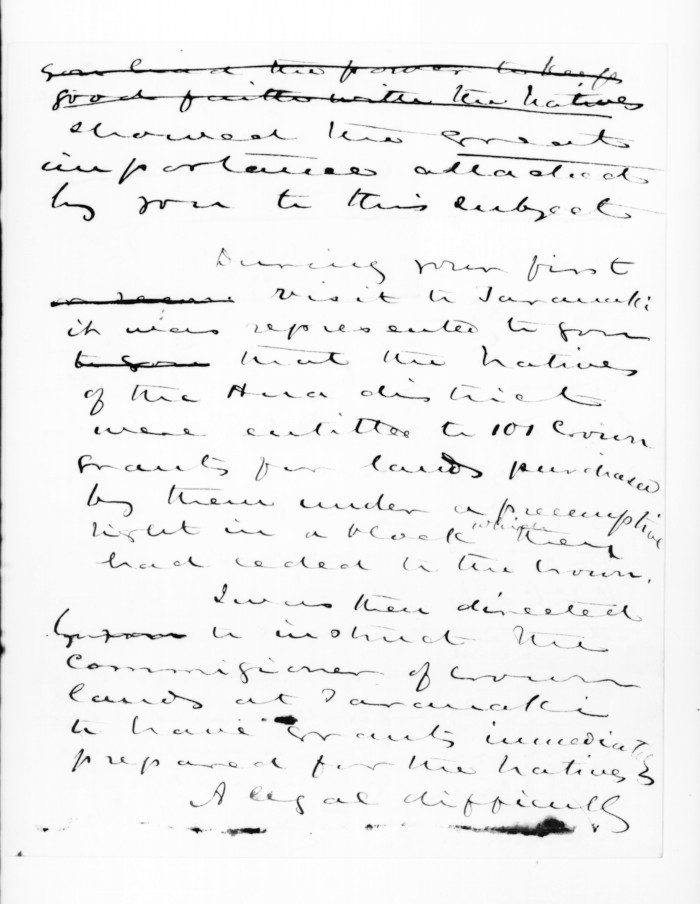 you had the power to keep
good faith with the Natives
showed the great
importance attached
by you to this subject
During your first
visit to Taranaki
it was represented to you
to you that the Natives
of the Hua district
were entitled to 101 Crown
grants for lands purchased
by them under a preemptive
right in a block which they
had ceded to the Crown.
I was then directed
by you to instruct the
Commissioner of Crown
lands at Taranaki
to have grants immediately
prepared for the Natives
A legal difficulty